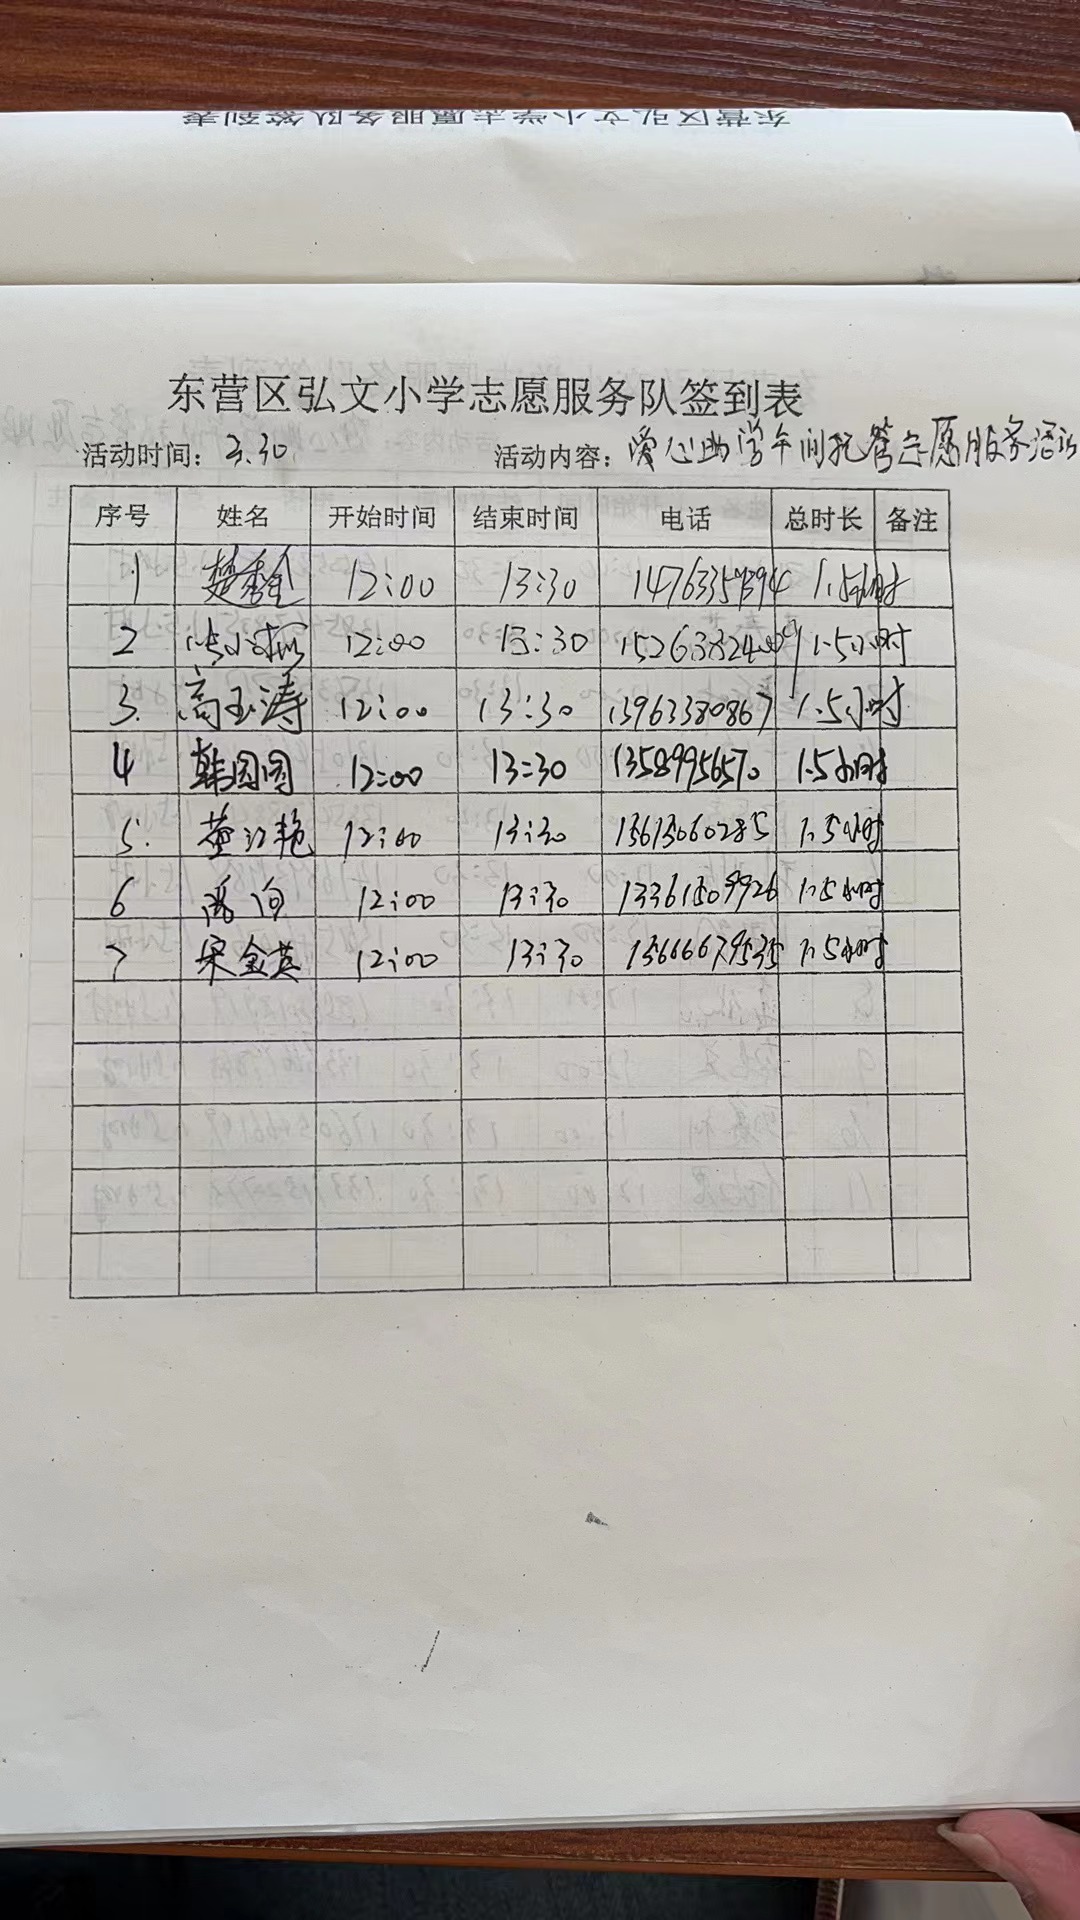 东营区弘文小学志愿服务队签到表
东营区弘文小学志愿服务队签到表
活动时间：3.30 活动内容：爱心助学午间托管志愿服务活动
序号 姓名 开始时间 结束时间 电话 总时长 备注
1 楚秀全 12:00 13:30 14763359394 1.5小时
2 12:00 13:30 1.5小时
3. 高玉涛 12:00 13:30 13963380867 1.5小时
4 韩圆圆 12:00 13:30 13589956570 1.5小时
5. 董江艳 12:00 13:30 13615060285 1.5小时
6 12:00 13:30 13361509926 1.5小时
7 宋金英 12:00 13:30 13666679535 1.5小时